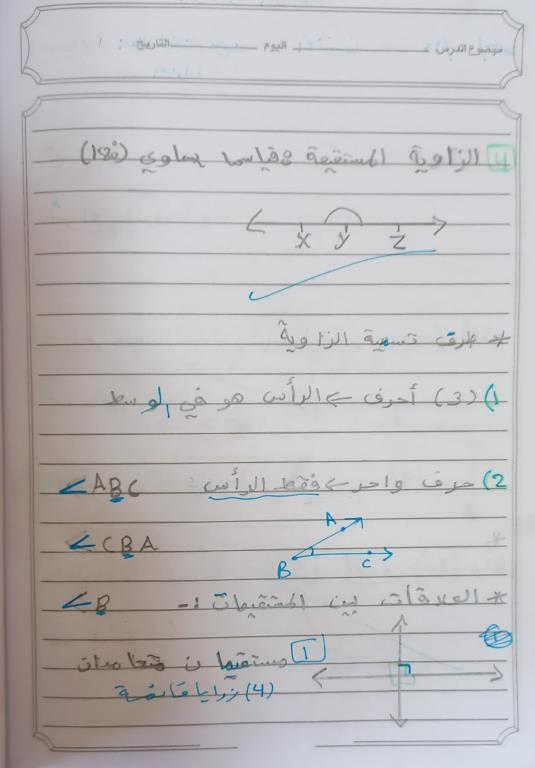 موضوع الدرس: اليوم التاريخ: /
4 الزاوية المستقيمة قياسها يساوي (180°)
X Y Z
* طرق تسمية الزاوية
1) (3) أحرف ← الرأس هو في الوسط
2) حرف واحد ← فقط الرأس ∠ABC
∠CBA
A
B C
* العلاقات بين المستقيمات :-
∠B
1 مستقيمان متعامدان
(4) زوايا قائمة